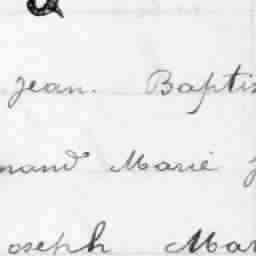 Jean. Baptis
mand Marie J
oseph Mar